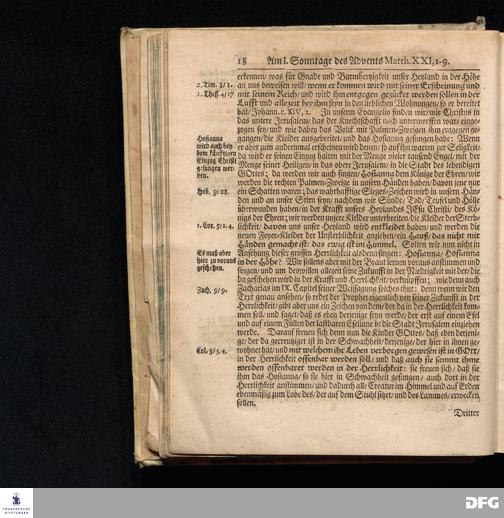 18 Am I. Sonntage des Advents Matth. XXI, 1-9.
erkennen/ was für Gnade und Barmhertzigkeit unser Heyland in der Höhe
2. Tim. 3/ 1. an uns beweisen will/ wenn er kommen wird mit seiner Erscheinung und
1. Theß. 4/17 mit seinem Reich/ und wird ihm entgegen gezücket werden sollen in der
Lufft und allezeit bey ihm seyn in den lieblichen Wohnungen/ so er bereitet
hat/ Johann. c. XIV, 2. In unserm Evangelio finden wir/ wie Christus in
das untere Jerusalem/ das der Knechtschafft noch unterworffen war/ einge-
zogen sey/ und wie dabey das Volck mit Palmen-Zweigen ihm entgegen ge-
Hosianna gangen/ die Kleider ausgebreitet/ und das Hosianna gesungen habe: Wenn
wird auch bey er aber zum andernmal erscheinen wird denen/ so auf ihn warten zur Seligkeit/
dem künfftigen da wird er seinen Einzug halten mit der Menge vieler tausend Engel/ mit der
Einzug Christi Menge seiner Heiligen/ in das obere Jerusalem/ in die Stadt des lebendigen
gesungen wer- GOttes; da werden wir auch singen/ Hosianna dem Könige der Ehren/ wir
den. werden die rechten Palmen-Zweige in unsern Händen haben/ davon jene nur
Heb. 9/ 28. ein Schatten waren; das wahrhafftige Sieges-Zeichen wird in unsern Hän-
den und an unser Stirn seyn/ nachdem wir Sünde/ Tod/ Teufel und Hölle
überwunden haben/ in der Krafft unsers Heylandes JEsu Christi/ des Kö-
nigs der Ehren; wir werden unsere Kleider unterbreiten/ die Kleider der Sterb-
2. Cor. 5/ 1. 4. lichkeit/ davon uns unser Heyland wird entkleidet haben/ und werden die
neuen Feyer-Kleider der Unsterblichkeit anziehen/ ein Hauß/ das nicht mit
Händen gemacht ist/ das ewig ist im Himmel. Solten wir nun nicht in
Es muß aber Ansehung dieser grossen Herrlichkeit allesamt singen: Hosianna/ Hosianna
hier zu voraus in der Höhe? Wir sollens aber mit der Braut lernen voraus anstimmen und
geschehen. singen/ und um deswillen allezeit seine Zukunfft in der Niedrigkeit mit der/ die
da geschehen wird in der Krafft und Herrlichkeit/ verknüpffen; wie denn auch
Zach. 9/ 9. Zacharias im IX. Capitel seiner Weissagung solches thut: denn wenn wir den
Text genau ansehen/ so redet der Prophet eigentlich von seiner Zukunfft in der
Herrlichkeit/ gibt aber uns ein Zeichen von dem/ der da in der Herrlichkeit kom-
men soll/ und saget/ daß es eben derjenige seyn werde/ der erst auf einem Esel
und auf einem Füllen der lastbaren Eselinne in die Stadt Jerusalem einziehen
werde. Darauf freuen sich denn nun die Kinder GOttes/ daß eben derjeni-
ge/ der da gecreutziget ist in der Schwachheit/ derjenige/ der hier in ihnen ge-
Col. 3/ 3. 4. wohnet hat/ und mit welchem ihr Leben verborgen gewesen ist in GOtt/
in der Herrlichkeit offenbar werden soll/ und daß auch sie sammt ihme
werden offenbaret werden in der Herrlichkeit: sie freuen sich/ daß sie
ihm das Hosianna/ so sie hier in Schwachheit gesungen/ auch dort in der
Herrlichkeit anstimmen/ und dadurch alle Creatur im Himmel und auf Erden
ebenmäßig zum Lobe des/ der auf dem Stuhl sitzet/ und des Lammes/ erwecken
sollen.
Dritter
FRANCKESCHE
STIFTUNGEN
DFG